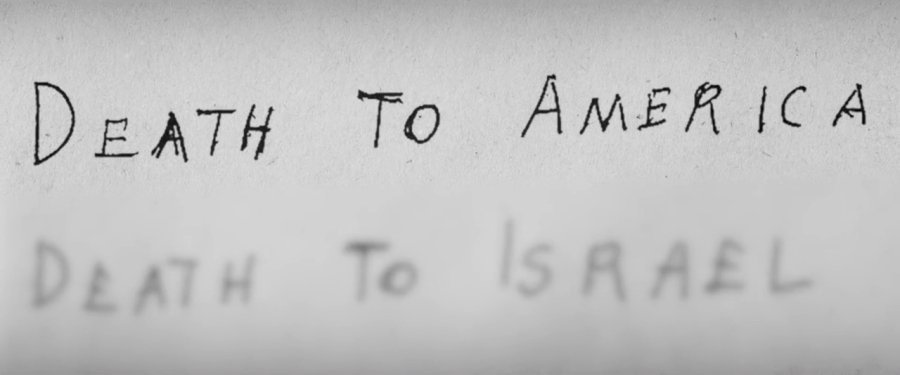 DEATH TO AMERICA
DEATH TO ISRAEL